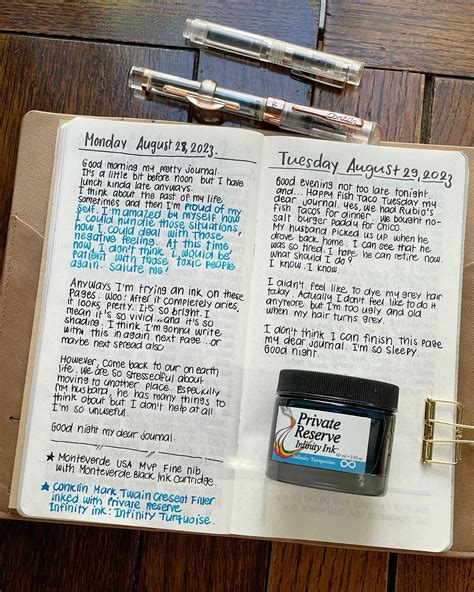 Monday August 28, 2023.
Good morning my pretty journal.
It's a little bit before noon but I have
lunch kinda late anyways.
I think about the past of my life
sometimes and then I'm proud of my
self. I'm amazed by myself how
I could hundle those situations,
how I could deal with those
negative feeling. At this time
now, I don't think I would be
patient with those toxic people
again. Salute me!
Anyways I'm trying an ink on these
pages. Woo! After it completely dries,
it looks pretty. It's so bright. I
mean it's so vivid... and it's so
shading. I think I'm gonna write
with this in again next page.. or
maybe next spread also.
However, come back to our on earth
life. We are so stressedful about
moving to another place. Especially
my husband, he has many things to
think about but I don't help at all.
I'm so unuseful.
Good night my dear journal.
★ Monteverde USA MVP Fine nib
with Monteverde Black Ink cartridge.
★ Conklin Mark Twain Cresent Filler
inked with Private Reserve
Infinity ink: Infinity Turquoise.
Tuesday August 29, 2023
Good evening not too late tonight.
and.. Happy Fish Taco Tuesday my
dear journal. Yes, we had Rubio's
Fish Tacos for dinner. We bought no-
salt burger paddy for Chico.
My husband picked us up when he
drove back home. I can see that he
was so tired. I hope he can retire now.
what should I do?
I know. I know.
I didn't feel like to dye my grey hair
today. Actually I don't feel like to do it
anymore but I'm too ugly and old
when my hair turns grey.
I don't think I can finish this page
my dear journal. I'm so sleepy.
Good night.
Conklin
Private
Reserve
Infinity Ink
Infinity Turquoise